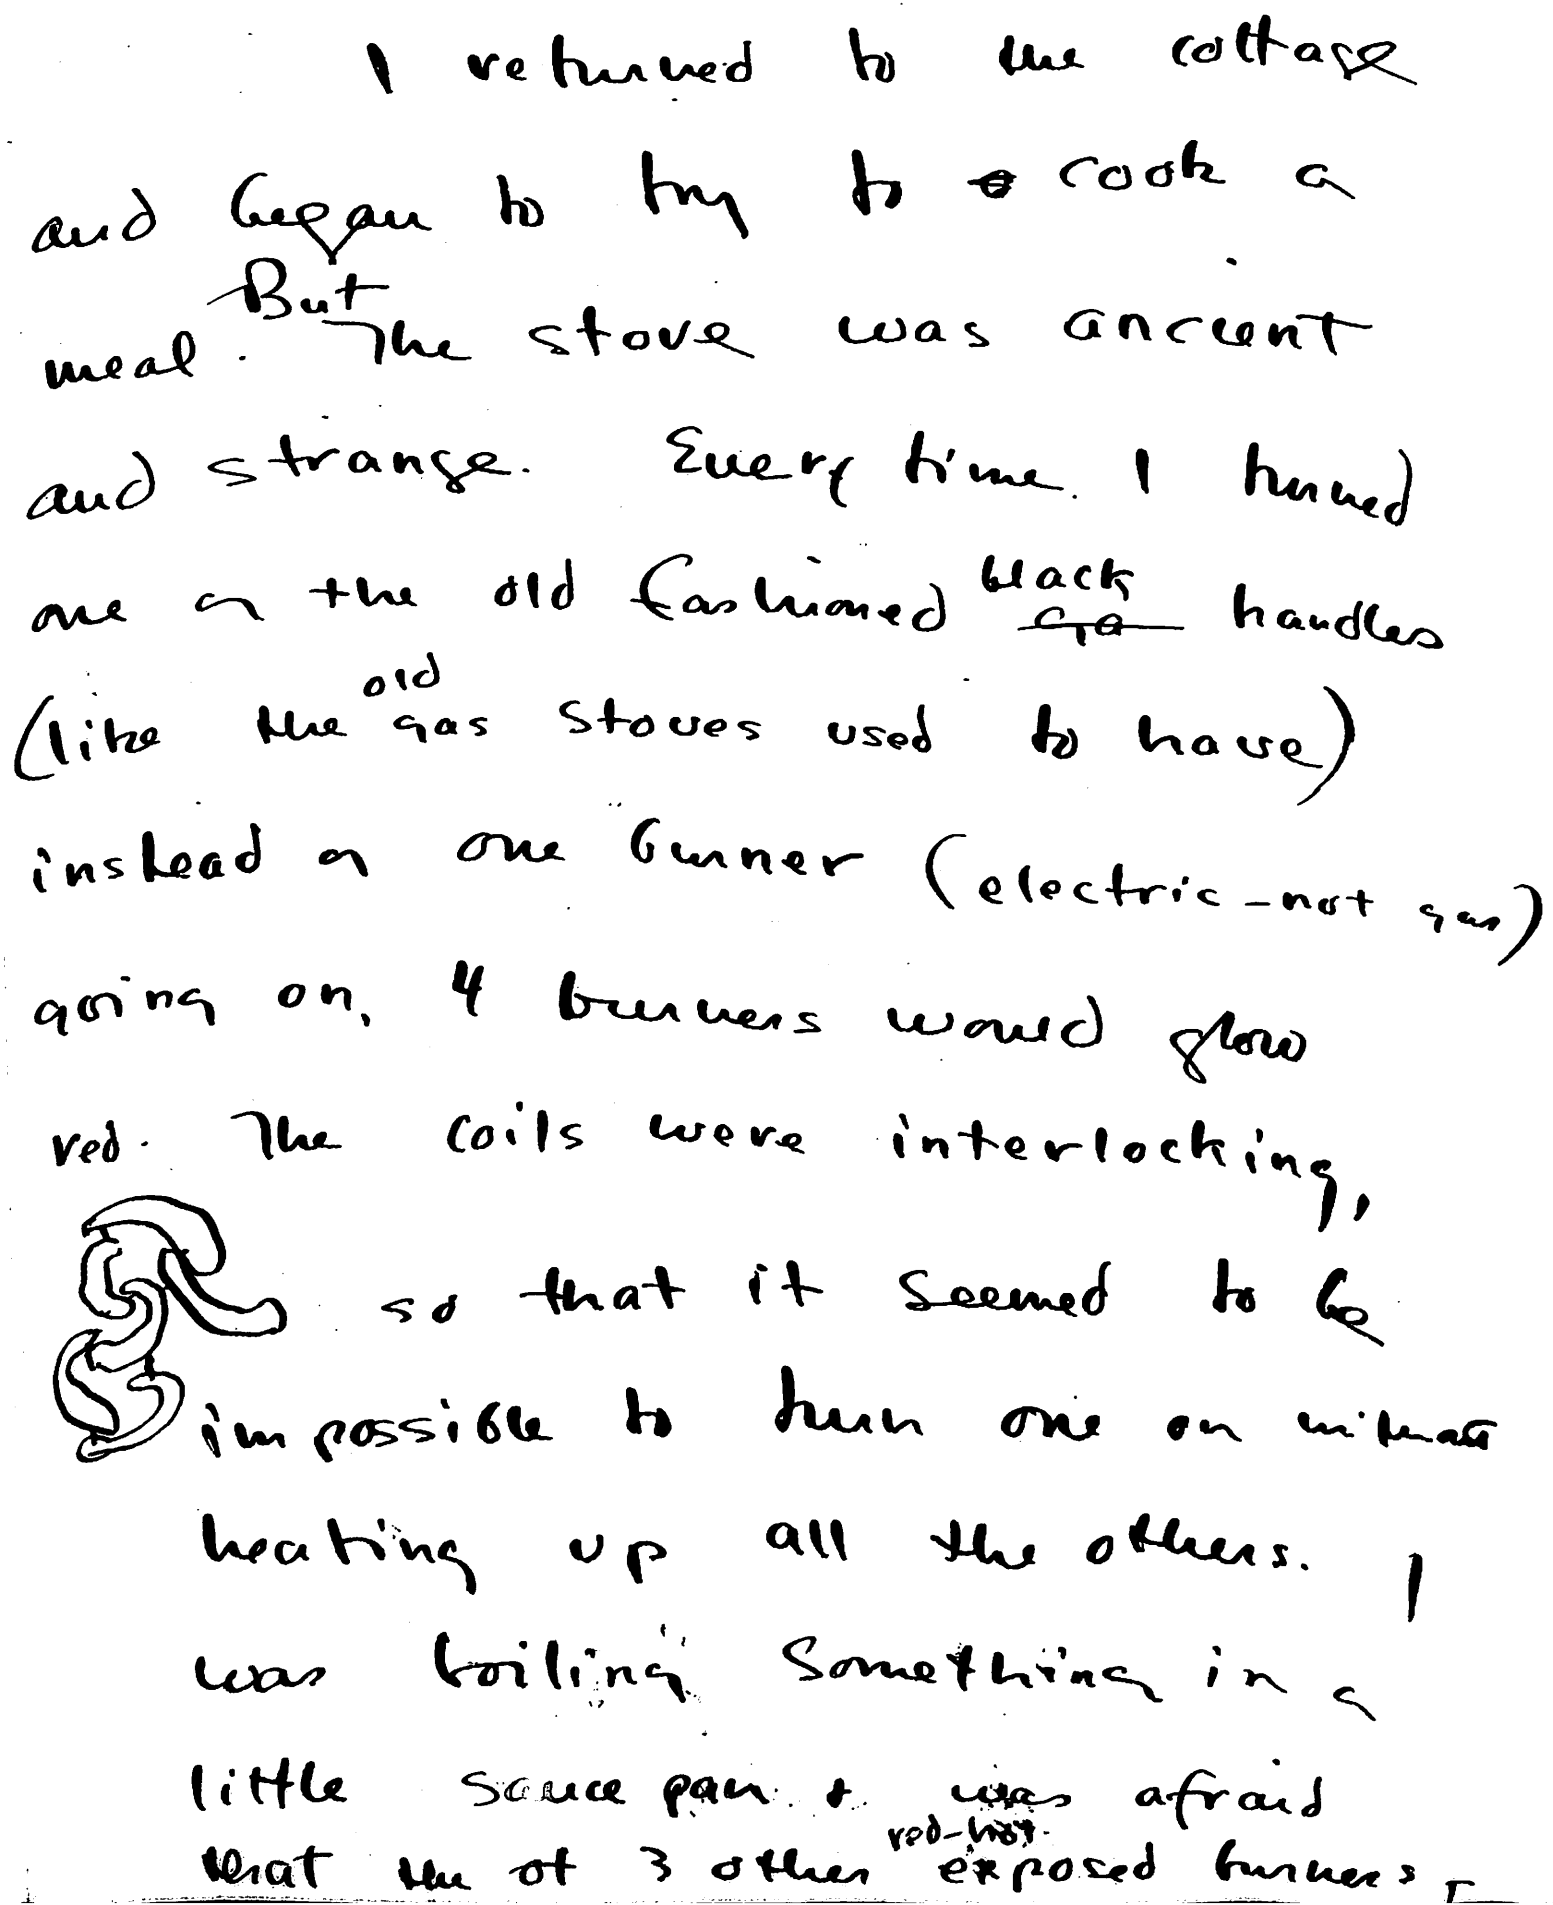 I returned to the cottage
and began to try to cook a
meal. But The stove was ancient
and strange. Every time I turned
one of the old fashioned black handles
(like the old gas stoves used to have)
instead of one burner (electric - not gas)
going on, 4 burners would glow
red. The coils were interlocking,
so that it seemed to be
impossible to turn one on without
heating up all the others. I
was boiling something in a
little sauce pan & was afraid
that the ot 3 other red-hot exposed burners